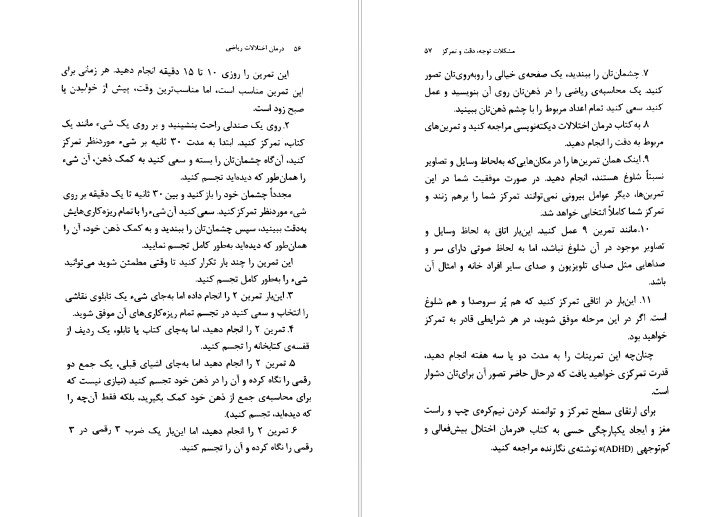 ۵۶ درمان اختلالات ریاضی
این تمرین را روزی ۱۰ تا ۱۵ دقیقه انجام دهید. هر زمانی برای
این تمرین مناسب است، اما مناسب‌ترین وقت، پیش از خوابیدن یا
صبح زود است.
۲. روی یک صندلی راحت بنشینید و بر روی یک شیء مانند یک
کتاب، تمرکز کنید. ابتدا به مدت ۳۰ ثانیه بر شیء موردنظر تمرکز
کنید، آن‌گاه چشمان‌تان را بسته و سعی کنید به کمک ذهن، آن شیء
را همان‌طور که دیده‌اید تجسم کنید.
مجدداً چشمان خود را باز کنید و بین ۳۰ ثانیه تا یک دقیقه بر روی
شیء موردنظر تمرکز کنید. سعی کنید آن شیء را با تمام ریزه‌کاری‌هایش
به‌دقت ببینید، سپس چشمان‌تان را ببندید و به کمک ذهن خود، آن را
همان‌طور که دیده‌اید به‌طور کامل تجسم نمایید.
این تمرین را چند بار تکرار کنید تا وقتی مطمئن شوید می‌توانید
شیء را به‌طور کامل تجسم کنید.
۳. این‌بار تمرین ۲ را انجام داده اما به‌جای شیء یک تابلوی نقاشی
را انتخاب و سعی کنید در تجسم تمام ریزه‌کاری‌های آن موفق شوید.
۴. تمرین ۲ را انجام دهید، اما به‌جای کتاب یا تابلو، یک ردیف از
قفسه‌ی کتابخانه را تجسم کنید.
۵. تمرین ۲ را انجام دهید اما به‌جای اشیای قبلی، یک جمع دو
رقمی را نگاه کرده و آن را در ذهن خود تجسم کنید (نیازی نیست که
برای محاسبه‌ی جمع از ذهن خود کمک بگیرید، بلکه فقط آن‌چه را
که دیده‌اید، تجسم کنید).
۶. تمرین ۲ را انجام دهید، اما این‌بار یک ضرب ۳ رقمی در ۳
رقمی را نگاه کرده و آن را تجسم کنید.
مشکلات توجه، دقت و تمرکز ۵۷
۷. چشمان‌تان را ببندید، یک صفحه‌ی خیالی را روبه‌روی‌تان تصور
کنید. یک محاسبه‌ی ریاضی را در ذهن‌تان روی آن بنویسید و عمل
کنید. سعی کنید تمام اعداد مربوط را با چشم ذهن‌تان ببینید.
۸. به کتاب درمان اختلالات دیکته‌نویسی مراجعه کنید و تمرین‌های
مربوط به دقت را انجام دهید.
۹. اینک همان تمرین‌ها را در مکان‌هایی‌که به‌لحاظ وسایل و تصاویر
نسبتاً شلوغ هستند، انجام دهید. در صورت موفقیت شما در این
تمرین‌ها، دیگر عوامل بیرونی نمی‌توانند تمرکز شما را برهم زنند و
تمرکز شما کاملاً انتخابی خواهد شد.
۱۰. مانند تمرین ۹ عمل کنید. این‌بار اتاق به لحاظ وسایل و
تصاویر موجود در آن شلوغ نباشد، اما به لحاظ صوتی دارای سر و
صداهایی مثل صدای تلویزیون و صدای سایر افراد خانه و امثال آن
باشد.
۱۱. این‌بار در اتاقی تمرکز کنید که هم پُر سروصدا و هم شلوغ
است. اگر در این مرحله موفق شوید، در هر شرایطی قادر به تمرکز
خواهید بود.
چنان‌چه این تمرینات را به مدت دو یا سه هفته انجام دهید،
قدرت تمرکزی خواهید یافت که در حال حاضر تصور آن برای‌تان دشوار
است.
برای ارتقای سطح تمرکز و توانمند کردن نیم‌کره‌ی چپ و راست
مغز و ایجاد یکپارچگی حسی به کتاب «درمان اختلال بیش‌فعالی و
کم‌توجهی (ADHD)» نوشته‌ی نگارنده مراجعه کنید.